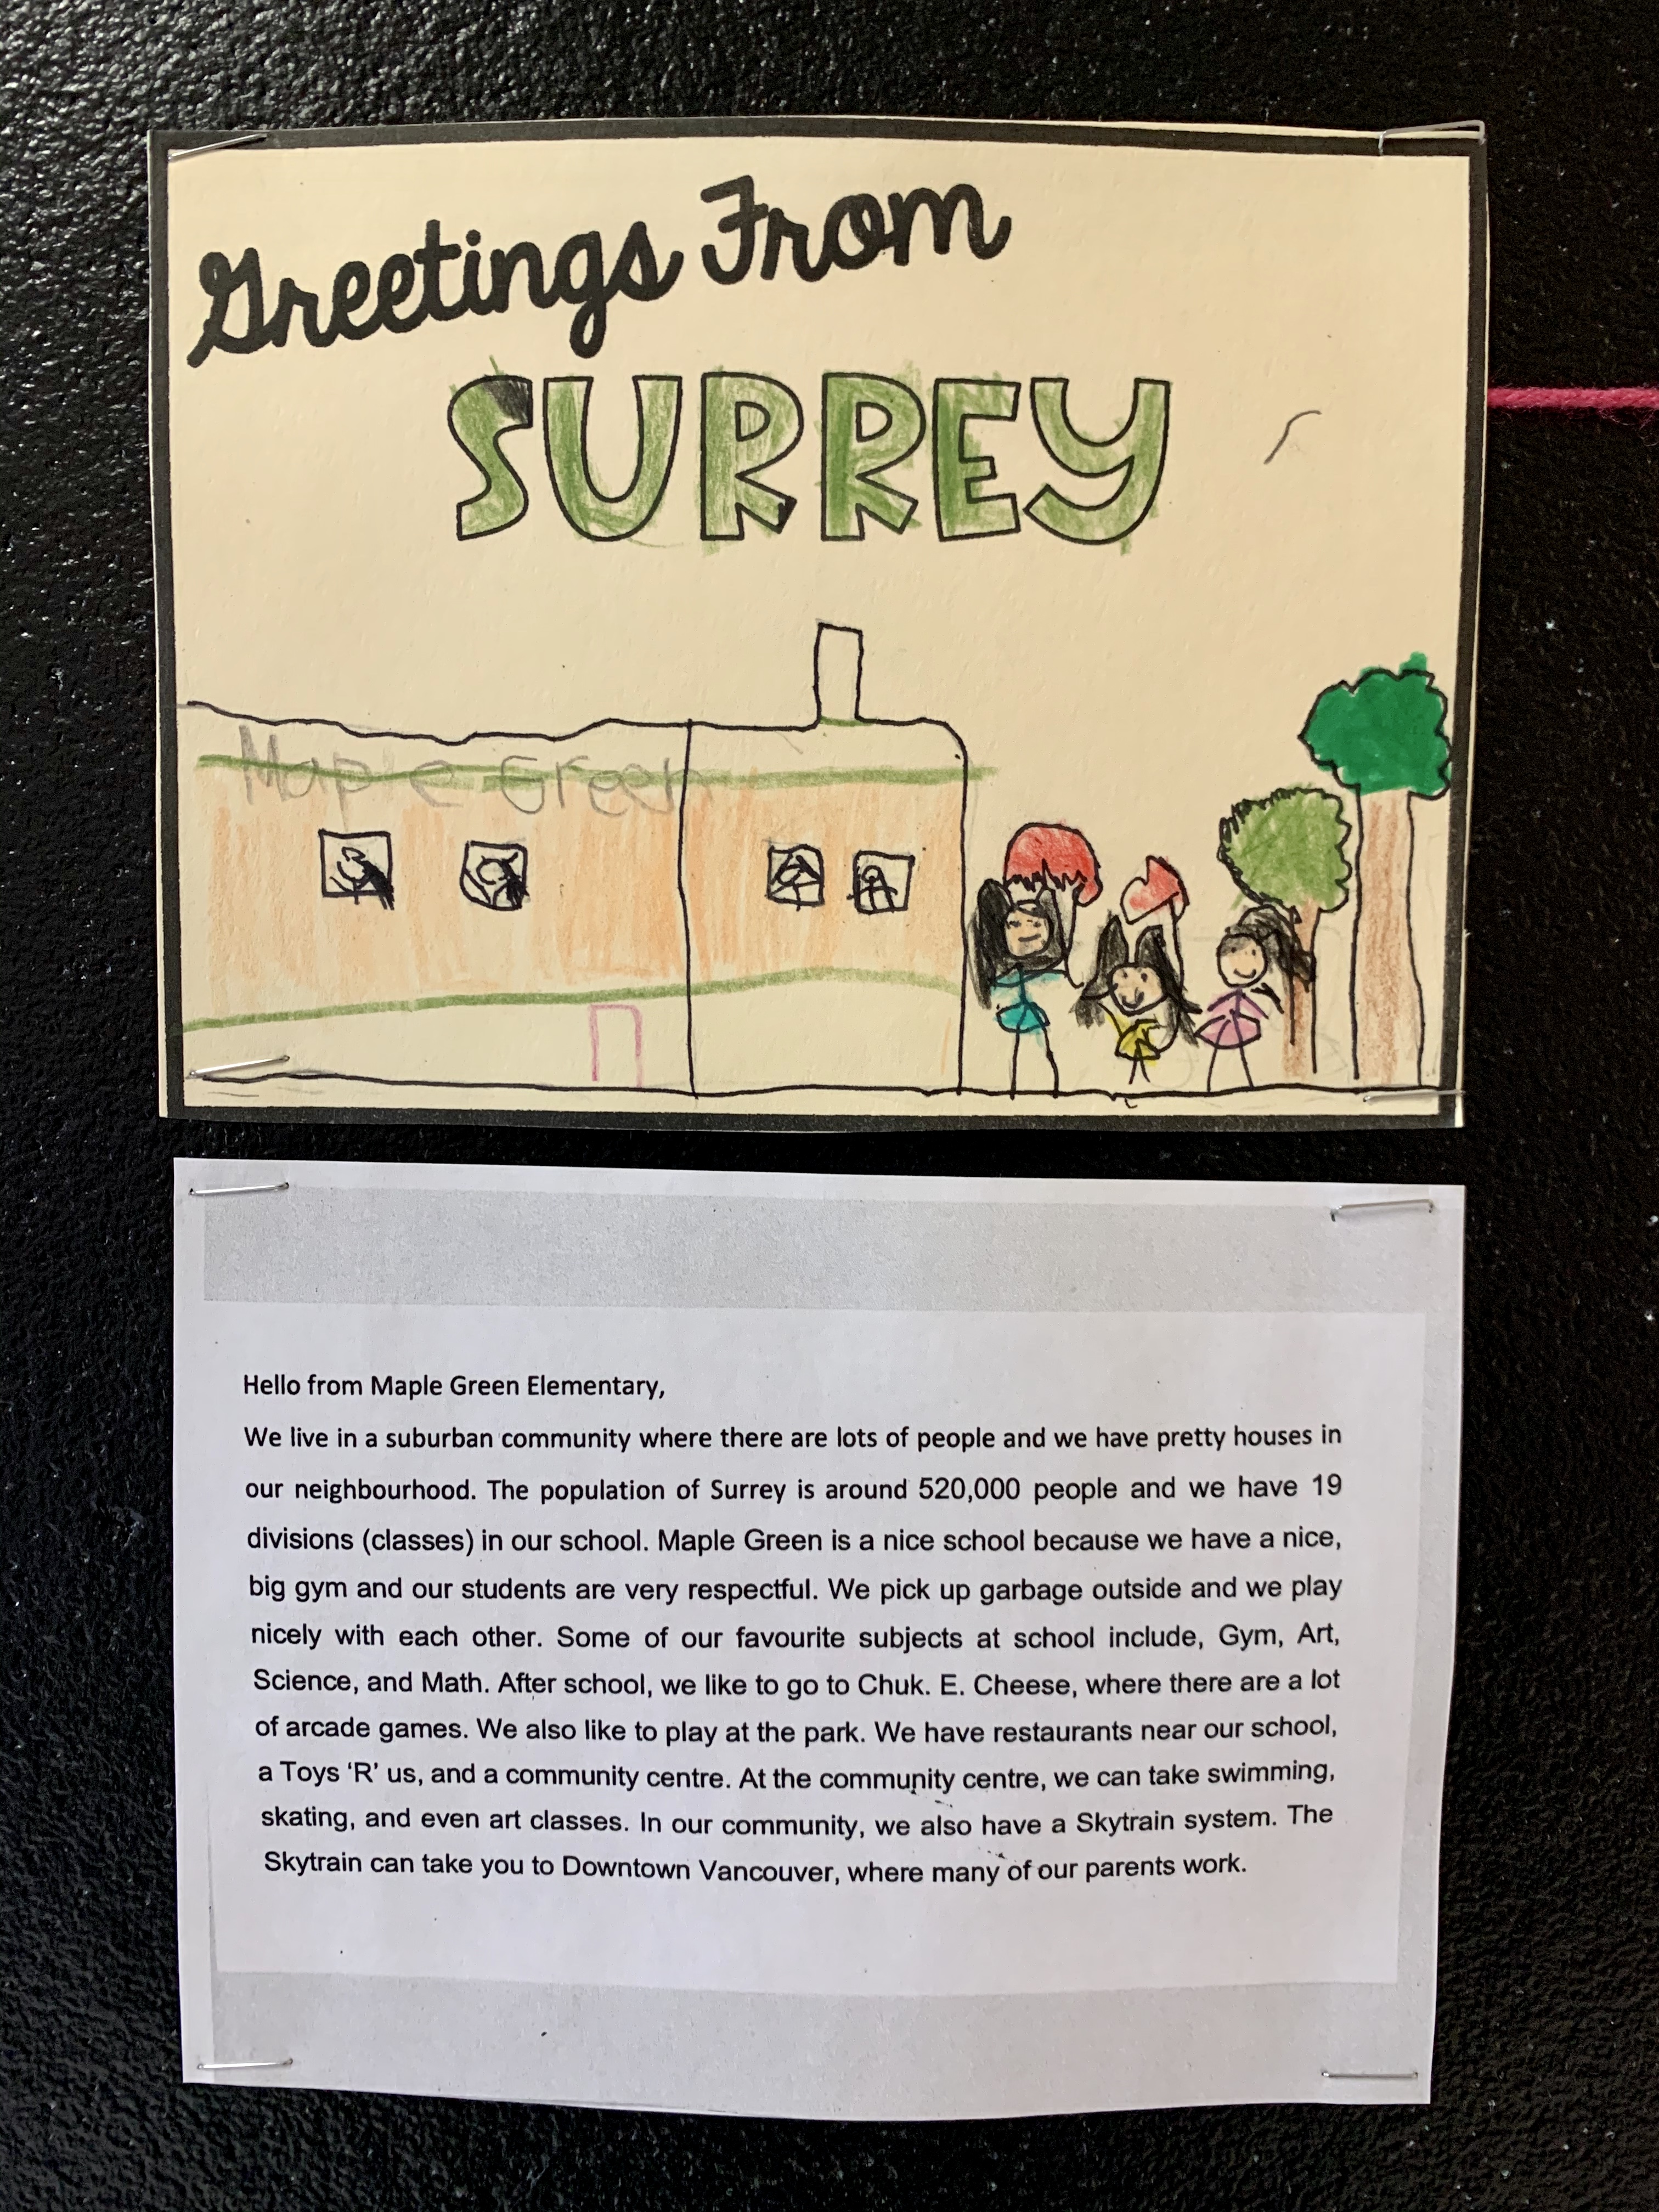 Greetings From
SURREY
Maple Green
Hello from Maple Green Elementary,
We live in a suburban community where there are lots of people and we have pretty houses in
our neighbourhood. The population of Surrey is around 520,000 people and we have 19
divisions (classes) in our school. Maple Green is a nice school because we have a nice,
big gym and our students are very respectful. We pick up garbage outside and we play
nicely with each other. Some of our favourite subjects at school include, Gym, Art,
Science, and Math. After school, we like to go to Chuk. E. Cheese, where there are a lot
of arcade games. We also like to play at the park. We have restaurants near our school,
a Toys ‘R’ us, and a community centre. At the community centre, we can take swimming,
skating, and even art classes. In our community, we also have a Skytrain system. The
Skytrain can take you to Downtown Vancouver, where many of our parents work.